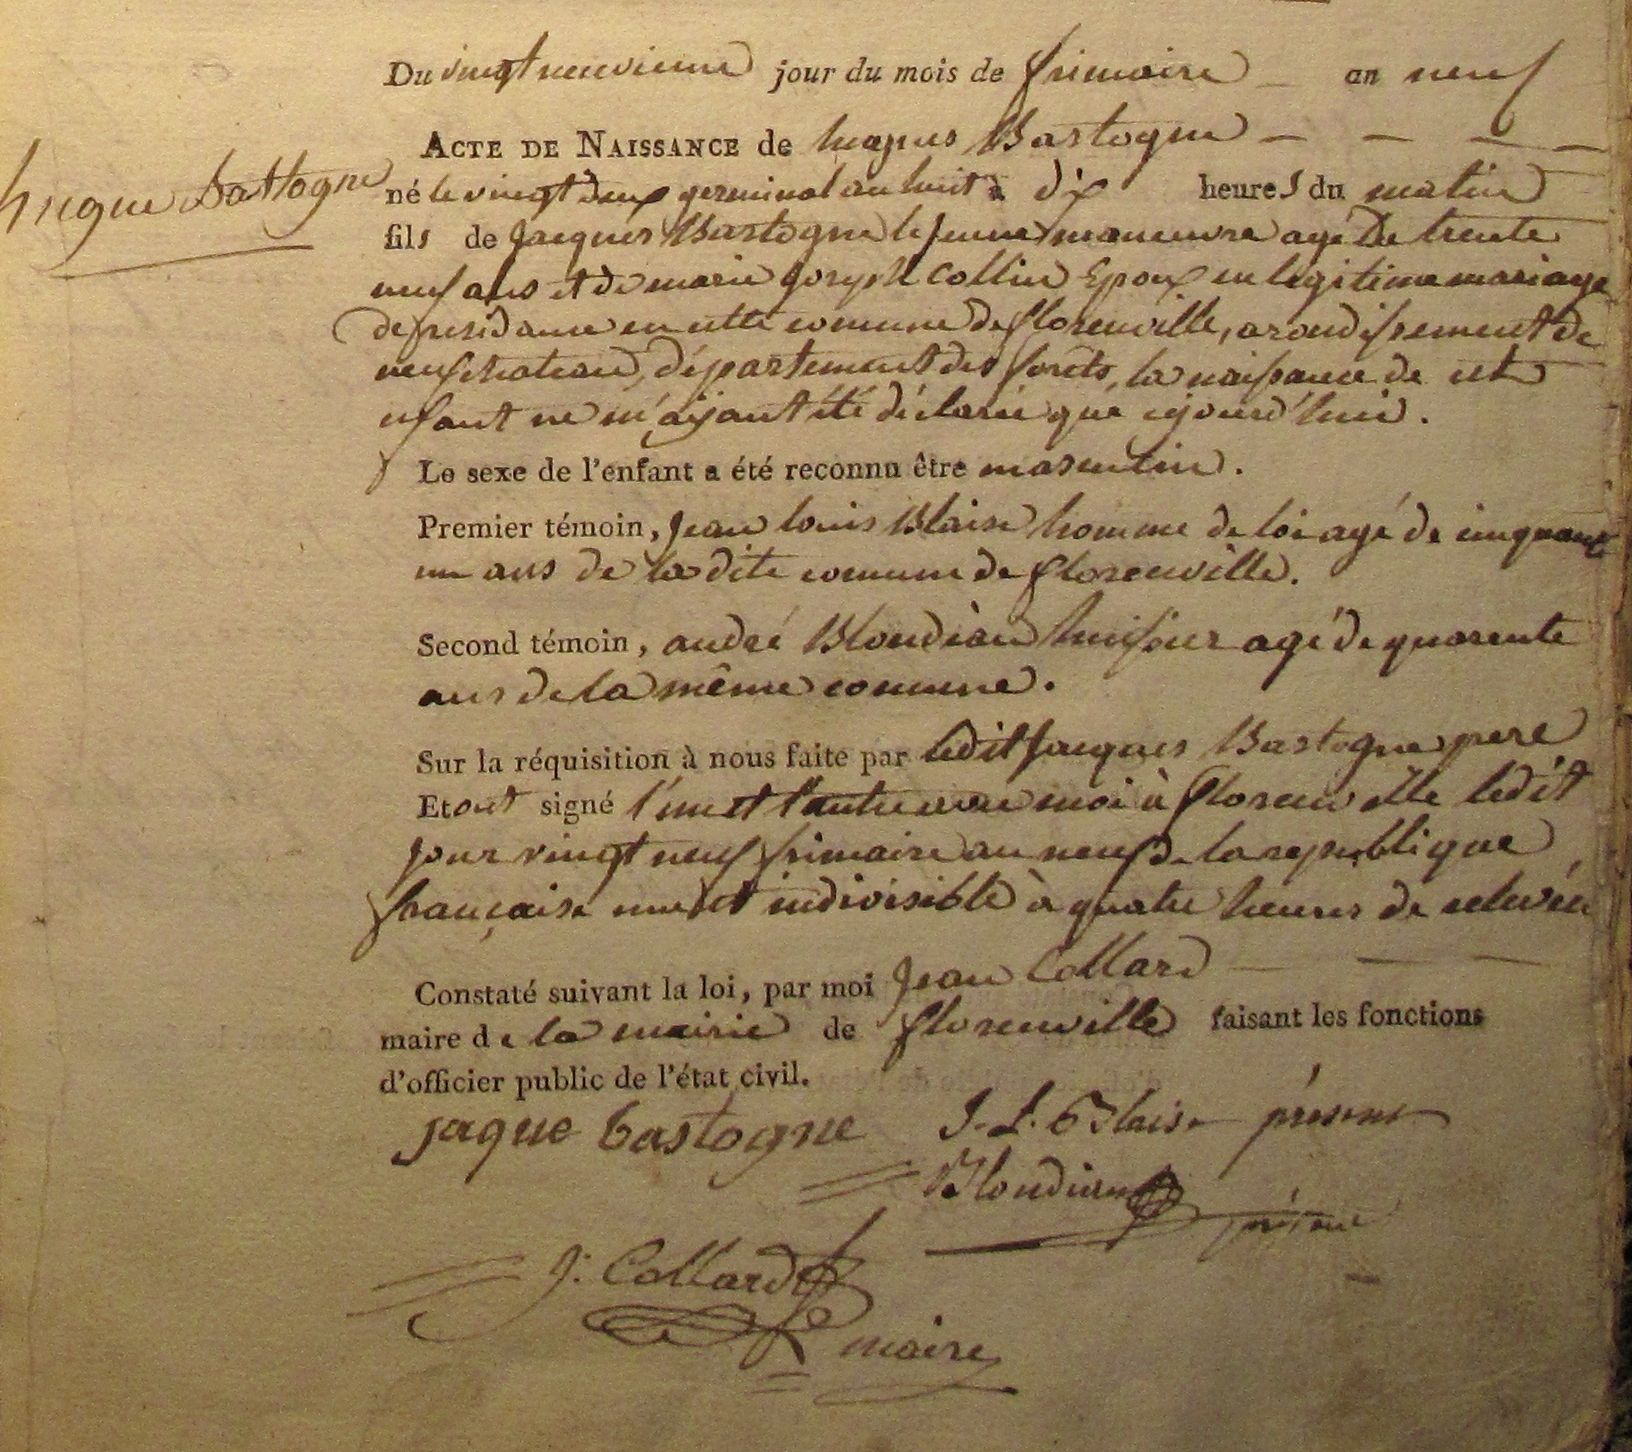 Du vingt neuvieme jour du mois de frimaire an neuf
ACTE DE NAISSANCE de huques Bastogne
huque Bastogne
né le vingt deux germinal an huit à dix heures du matin
fils de Jacques Bastogne le jeune manoeuvre agé De trente
neuf ans et de marie joseph Collin Epoux en legitime mariage
de residance en cette comune de florenville, arondissement de
neufchateau, département des forêts, la naissance de cet
enfant ne m'aÿant été déclarée que cejourd'huis.
Le sexe de l'enfant a été reconnu être masculin.
Premier témoin, Jean louis Blaise homme de loi agé de cinquante
un ans de la dite comune de florenville.
Second témoin, andré Blondiau huissier agé de quarente
ans de la même comune.
Sur la réquisition à nous faite par ledit Jacques Bastogne pere
Et ont signé l'un et l'autre avec moi à florenville ledit
jour vingt neuf frimaire an neuf de la republique
française une et indivisible à quatre heures de relevée
Constaté suivant la loi, par moi Jean Collard
maire de la mairie de florenville faisant les fonctions
d'officier public de l'état civil.
jaque bastogne J. L. Blaise présent
Blondiau présent
J. Collard
maire